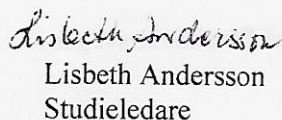 Lisbeth Andersson
Lisbeth Andersson
Studieledare